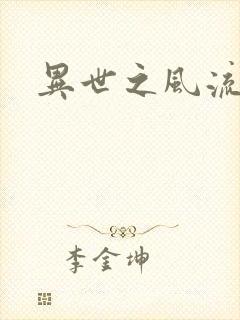 異世之風流
李金坤